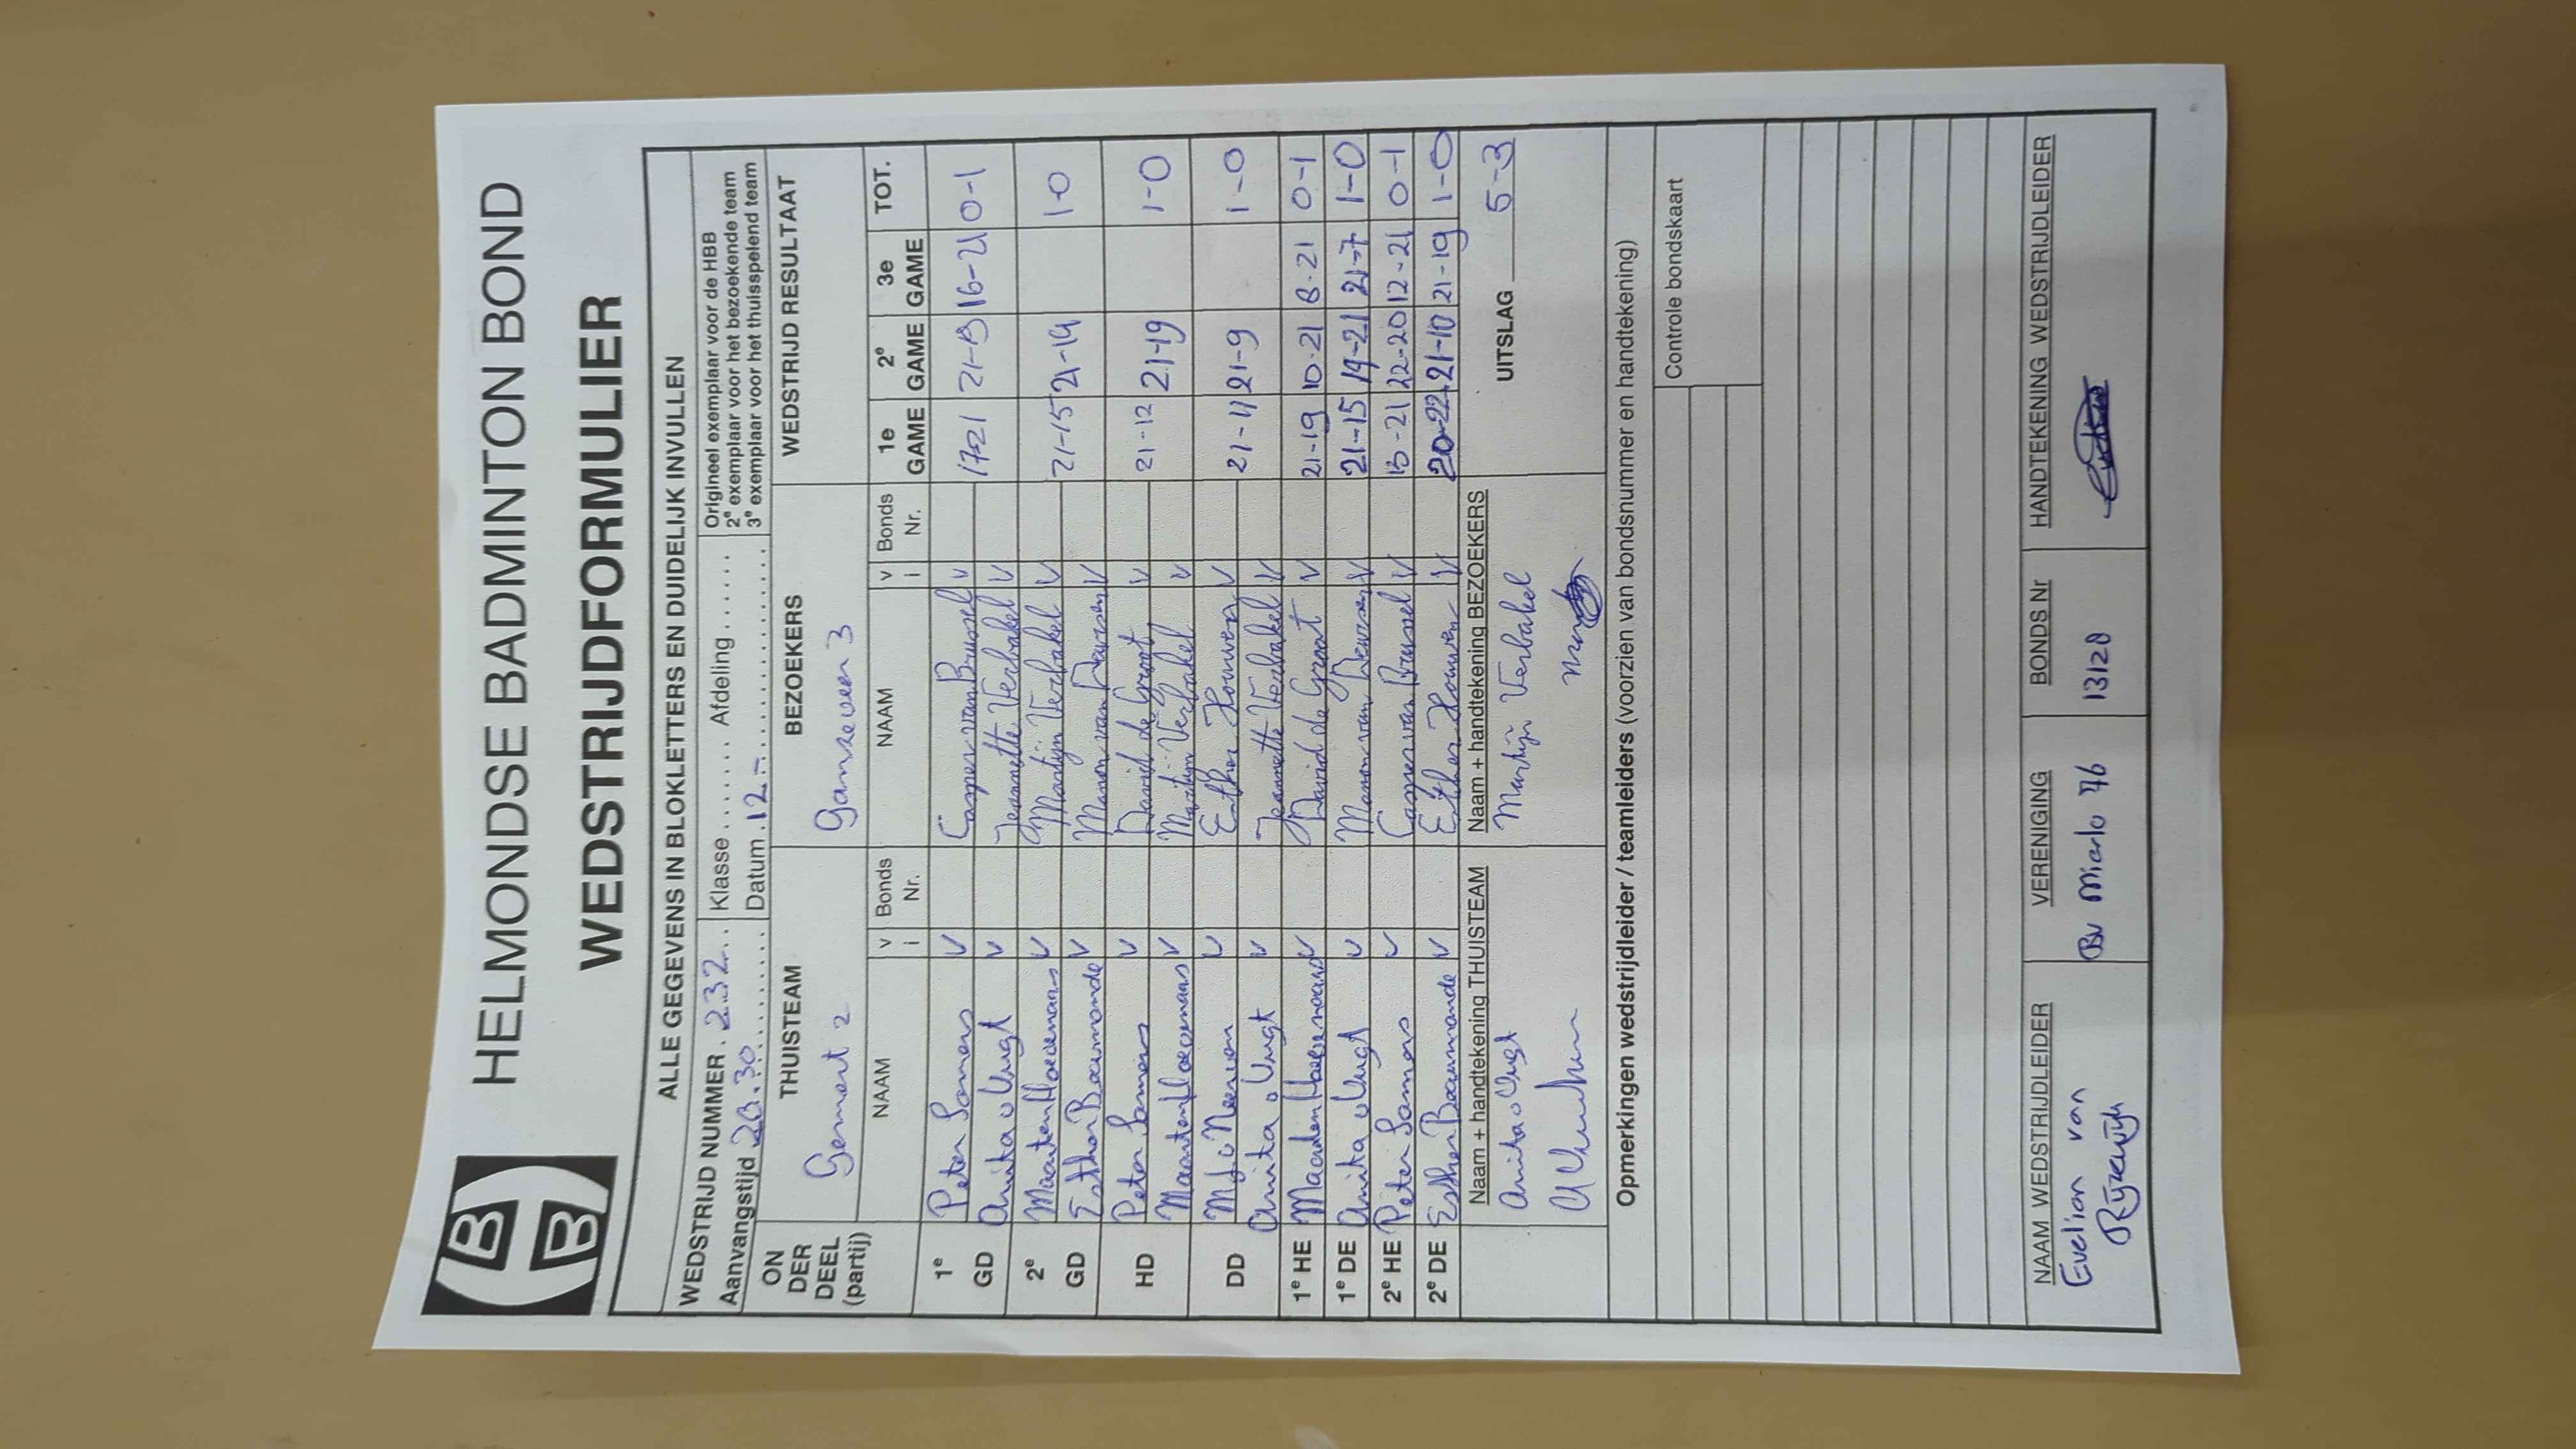 HBB
HELMONDSE BADMINTON BOND
WEDSTRIJDFORMULIER
ALLE GEGEVENS IN BLOKLETTERS EN DUIDELIJK INVULLEN
WEDSTRIJD NUMMER . 232 . . Klasse . . . . . . . Afdeling . . . . . .
Aanvangstijd 20.30 . . . . . . . . Datum . 12 - . . . . . . . . . . . . . . . .
Origineel exemplaar voor de HBB
2e exemplaar voor het bezoekende team
3e exemplaar voor het thuisspelend team
ON DER DEEL (partij) THUISTEAM BEZOEKERS WEDSTRIJD RESULTAAT
Gemert 2 Ganzeveer 3
NAAM v i Bonds Nr. NAAM v i Bonds Nr. 1e GAME 2e GAME 3e GAME TOT.
1e GD Peter Somers v Casper van Brussel v 17-21 21-19 16-21 0-1
Anita v Vugt v Jeannette Verbakel v
2e GD Maarten Hoevenaars v Martijn Verbakel v 21-15 21-14 1-0
Esther Boumans v Manon van Deursen v
HD Peter Somers v David de Groot v 21-12 21-19 1-0
Maarten Hoevenaars v Martijn Verbakel v
DD v Esther Houwen v 21-11 21-9 1-0
Anita v Vugt v Jeannette Verbakel v
1e HE Maarten Hoevenaars v David de Groot v 21-19 10-21 8-21 0-1
1e DE Anita v Vugt v Manon van Deursen v 21-15 19-21 21-7 1-0
2e HE Peter Somers v Casper van Brussel v 13-21 22-20 12-21 0-1
2e DE Esther v Esther Houwen v 20-22 21-10 21-19 1-0
Naam + handtekening THUISTEAM Naam + handtekening BEZOEKERS
Anita v Vugt Martijn Verbakel
UITSLAG 5-3
Opmerkingen wedstrijdleider / teamleiders (voorzien van bondsnummer en handtekening)
Controle bondskaart
NAAM WEDSTRIJDLEIDER VERENIGING BONDS Nr HANDTEKENING WEDSTRIJDLEIDER
Evelian van BV Mierlo 76 13128
Rijsewijk